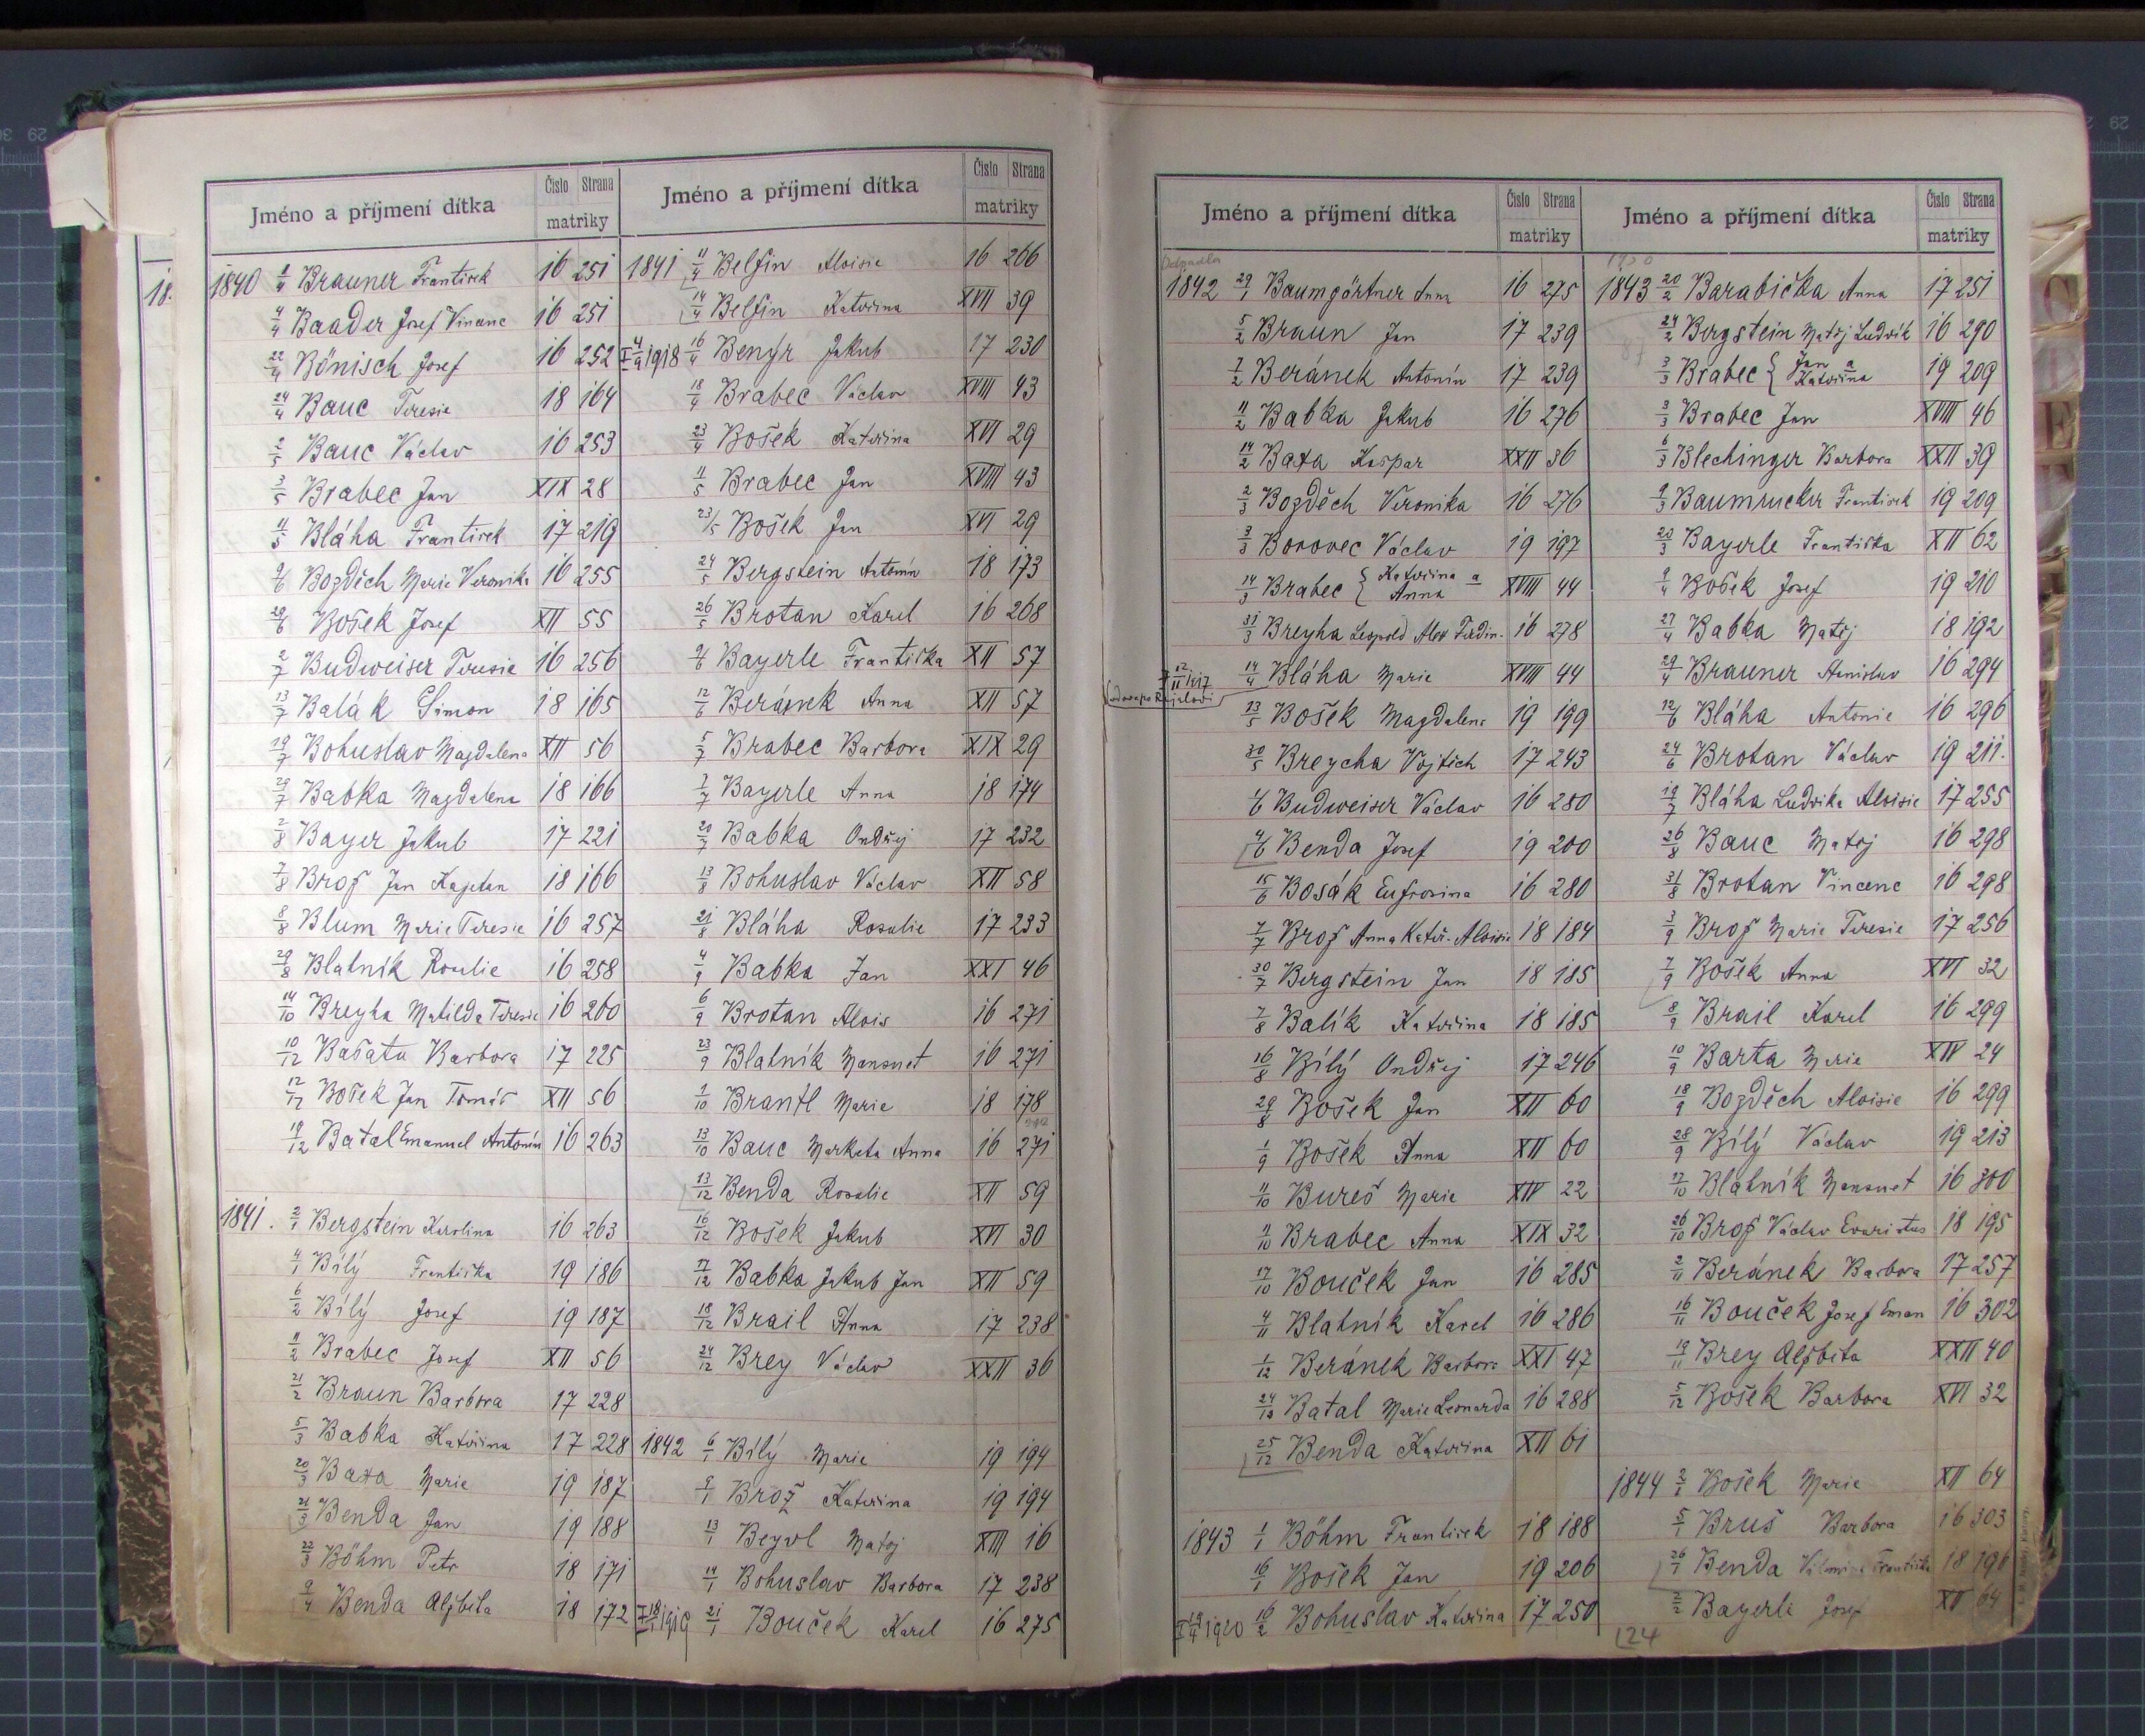 Jméno a příjmení dítka
Číslo Strana
matriky
1840 1/4 Brauner František 16 251
4/4 Baader Josef Vincenc 16 251
22/4 Bönisch Josef 16 252
24/4 Bauc Teresie 18 164
2/5 Bauc Václav 16 253
3/5 Brabec Jan XIX 28
11/5 Bláha František 17 219
9/6 Bozděch Marie Veronika 16 255
29/6 Bošek Josef XII 55
2/7 Budweiser Teresie 16 256
13/7 Balák Šimon 18 165
19/7 Bohuslav Magdalena XII 56
29/7 Babka Magdalena 18 166
2/8 Bayer Jakub 17 221
7/8 Brož Jan Kajetan 18 166
8/8 Blum Marie Teresie 16 257
29/8 Blatník Rosalie 16 258
14/10 Breyha Matilda Teresie 16 260
10/12 Bašata Barbora 17 225
12/12 Bošek Jan Tomáš XII 56
19/12 Batal Emanuel Antonín 16 263
1841. 2/1 Bergstein Karolina 16 263
4/1 Bílý Františka 19 186
6/2 Bílý Josef 19 187
11/2 Brabec Josef XII 56
21/2 Braun Barbora 17 228
5/3 Babka Kateřina 17 228
20/3 Baxa Marie 19 187
21/3 Benda Jan 19 188
22/3 Böhm Petr 18 171
9/4 Benda Alžběta 18 172
Jméno a příjmení dítka
Číslo Strana
matriky
1841 11/4 Belfin Aloisie 16 266
14/4 Belfin Kateřina XVII 39
4/9 1918 16/4 Benýr Jakub 17 230
18/4 Brabec Václav XVIII 43
23/4 Bošek Kateřina XVI 29
11/5 Brabec Jan XVIII 43
23/5 Bošek Jan XVI 29
24/5 Bergstein Antonín 18 173
26/5 Brotan Karel 16 268
9/6 Bayerle Františka XII 57
12/6 Beránek Anna XII 57
5/7 Brabec Barbora XIX 29
7/7 Bayerle Anna 18 174
20/7 Babka Ondřej 17 232
13/8 Bohuslav Václav XII 58
21/8 Bláha Rosalie 17 233
4/9 Babka Jan XXI 46
6/9 Brotan Alois 16 271
23/9 Blatník Mansuet 16 271
1/10 Brantl Marie 18 178
13/10 Bauc Markéta Anna 16 271
13/12 Benda Rosalie XII 59
16/12 Bošek Jakub XVI 30
17/12 Babka Jakub Jan XII 59
18/12 Brail Anna 17 238
24/12 Brey Václav XXII 36
1842 6/1 Bílý Marie 19 194
9/1 Brož Kateřina 19 194
13/1 Beywl Matěj XIII 16
14/1 Bohuslav Barbora 17 238
1919 21/1 Bouček Karel 16 275
Jméno a příjmení dítka
Číslo Strana
matriky
1842 29/1 Baumgörtner Anna 16 275
5/2 Braun Jan 17 239
7/2 Beránek Antonín 17 239
11/2 Babka Jakub 16 276
14/2 Baxa Kašpar XXII 36
2/3 Bozděch Veronika 16 276
3/3 Borovec Václav 19 197
14/3 Brabec { Kateřina a Anna XVIII 44
31/3 Breyha Leopold Alex Ferdin. 16 278
12/11 1917 14/4 Bláha Marie XVIII 44
23/5 Bošek Magdalena 19 199
30/5 Breycha Vojtěch 17 243
1/6 Budweiser Václav 16 280
4/6 Benda Josef 19 200
15/6 Bosák Eufrosina 16 280
7/7 Brož Anna Kateř. Aloisie 18 184
30/7 Bergstein Jan 18 185
7/8 Balík Kateřina 18 185
16/8 Bílý Ondřej 17 246
29/8 Bošek Jan XII 60
1/9 Bošek Anna XII 60
11/10 Bureš Marie XIV 22
11/10 Brabec Anna XIX 32
17/10 Bouček Jan 16 285
4/11 Blatník Karel 16 286
1/12 Beránek Barbora XXI 47
24/12 Batal Marie Leonarda 16 288
25/12 Benda Kateřina XII 61
1843 1/1 Böhm František 18 188
16/1 Bošek Jan 19 206
19/4 1920 16/2 Bohuslav Kateřina 17 250
Jméno a příjmení dítka
Číslo Strana
matriky
1843 20/2 Barabička Anna 17 251
24/2 Bergstein Matěj Ludvík 16 290
3/3 Brabec { Jan a Kateřina 19 209
3/3 Brabec Jan XVIII 46
6/3 Blechinger Barbora XXII 39
9/3 Baumrucker František 19 209
20/3 Bayerle Františka XII 62
9/4 Bošek Josef 19 210
27/4 Babka Matěj 18 192
29/4 Brauner Stanislav 16 294
12/6 Bláha Antonie 16 296
24/6 Brotan Václav 19 211.
19/7 Bláha Ludvika Aloisie 17 255
26/8 Bauc Matěj 16 298
31/8 Brotan Vincenc 16 298
3/9 Brož Marie Teresie 17 256
7/9 Bošek Anna XVI 32
8/9 Brail Karel 16 299
10/9 Barta Marie XIV 24
18/9 Bozděch Aloisie 16 299
28/9 Bílý Václav 19 213
17/10 Blatník Mansuet 16 300
26/10 Brož Václav Evaristus 18 195
2/11 Beránek Barbora 17 257
16/11 Bouček Josef Eman 16 302
19/11 Brey Alžběta XXII 40
5/12 Bošek Barbora XVI 32
1844 2/1 Bošek Marie XII 64
5/1 Bruš Barbora 16 303
26/1 Benda Františka 18 196
2/2 Bayerle Josef 64
124